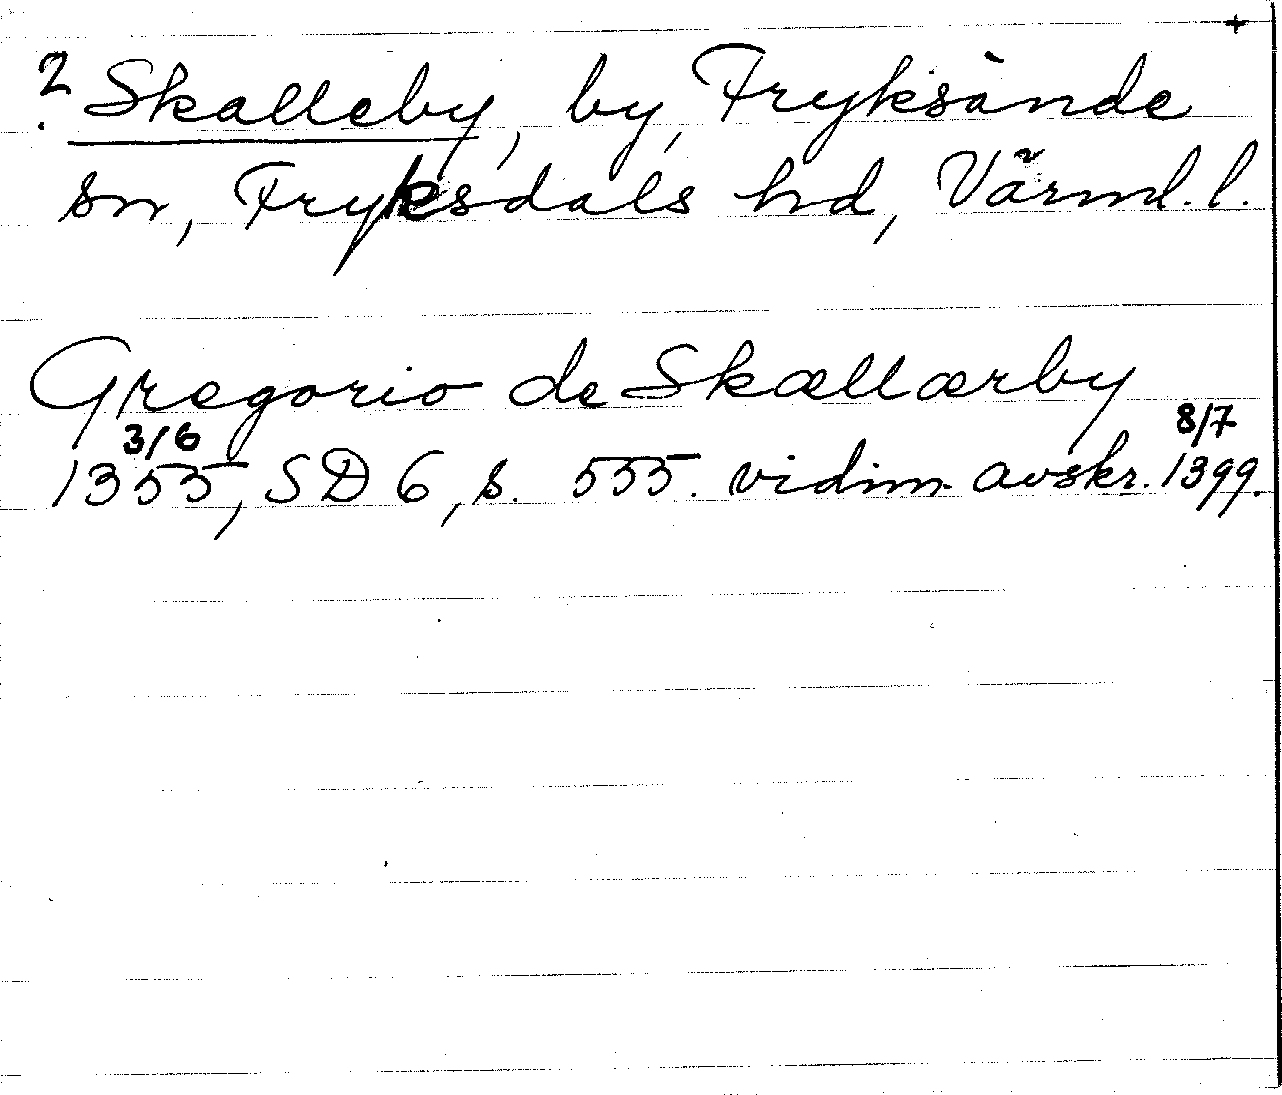 +
? Skalleby, by, Fryksände
sn, Fryksdals hd, Värml. l.
Gregorio de Skællærby
3/6 8/7
1355, SD 6, s. 555. vidim. avskr. 1399.